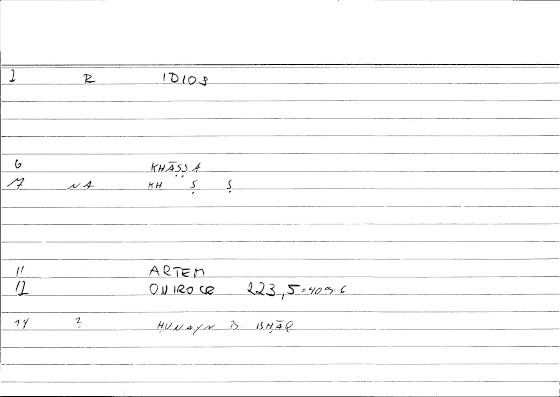 1 R IDIOS
6 KHĀṢṢA
7 NA KH Ṣ Ṣ
11 ARTEM
12 ONIROCR 223,5 = 409 6
14 2 ḤUNAYN B ISḤĀQ